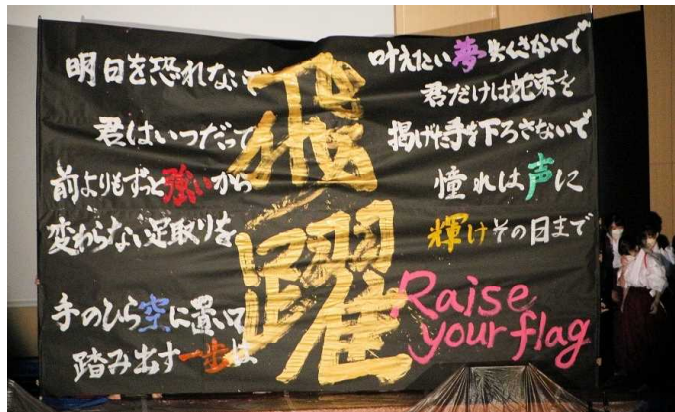 明日を恐れないで
君はいつだって
前よりもずっと強いから
変わらない足取りを
手のひら空に置いて
踏み出す一歩は
飛躍
叶えたい夢失くさないで
君だけは花束を
掲げた手を下ろさないで
憧れは声に
輝けその日まで
Raise
your flag